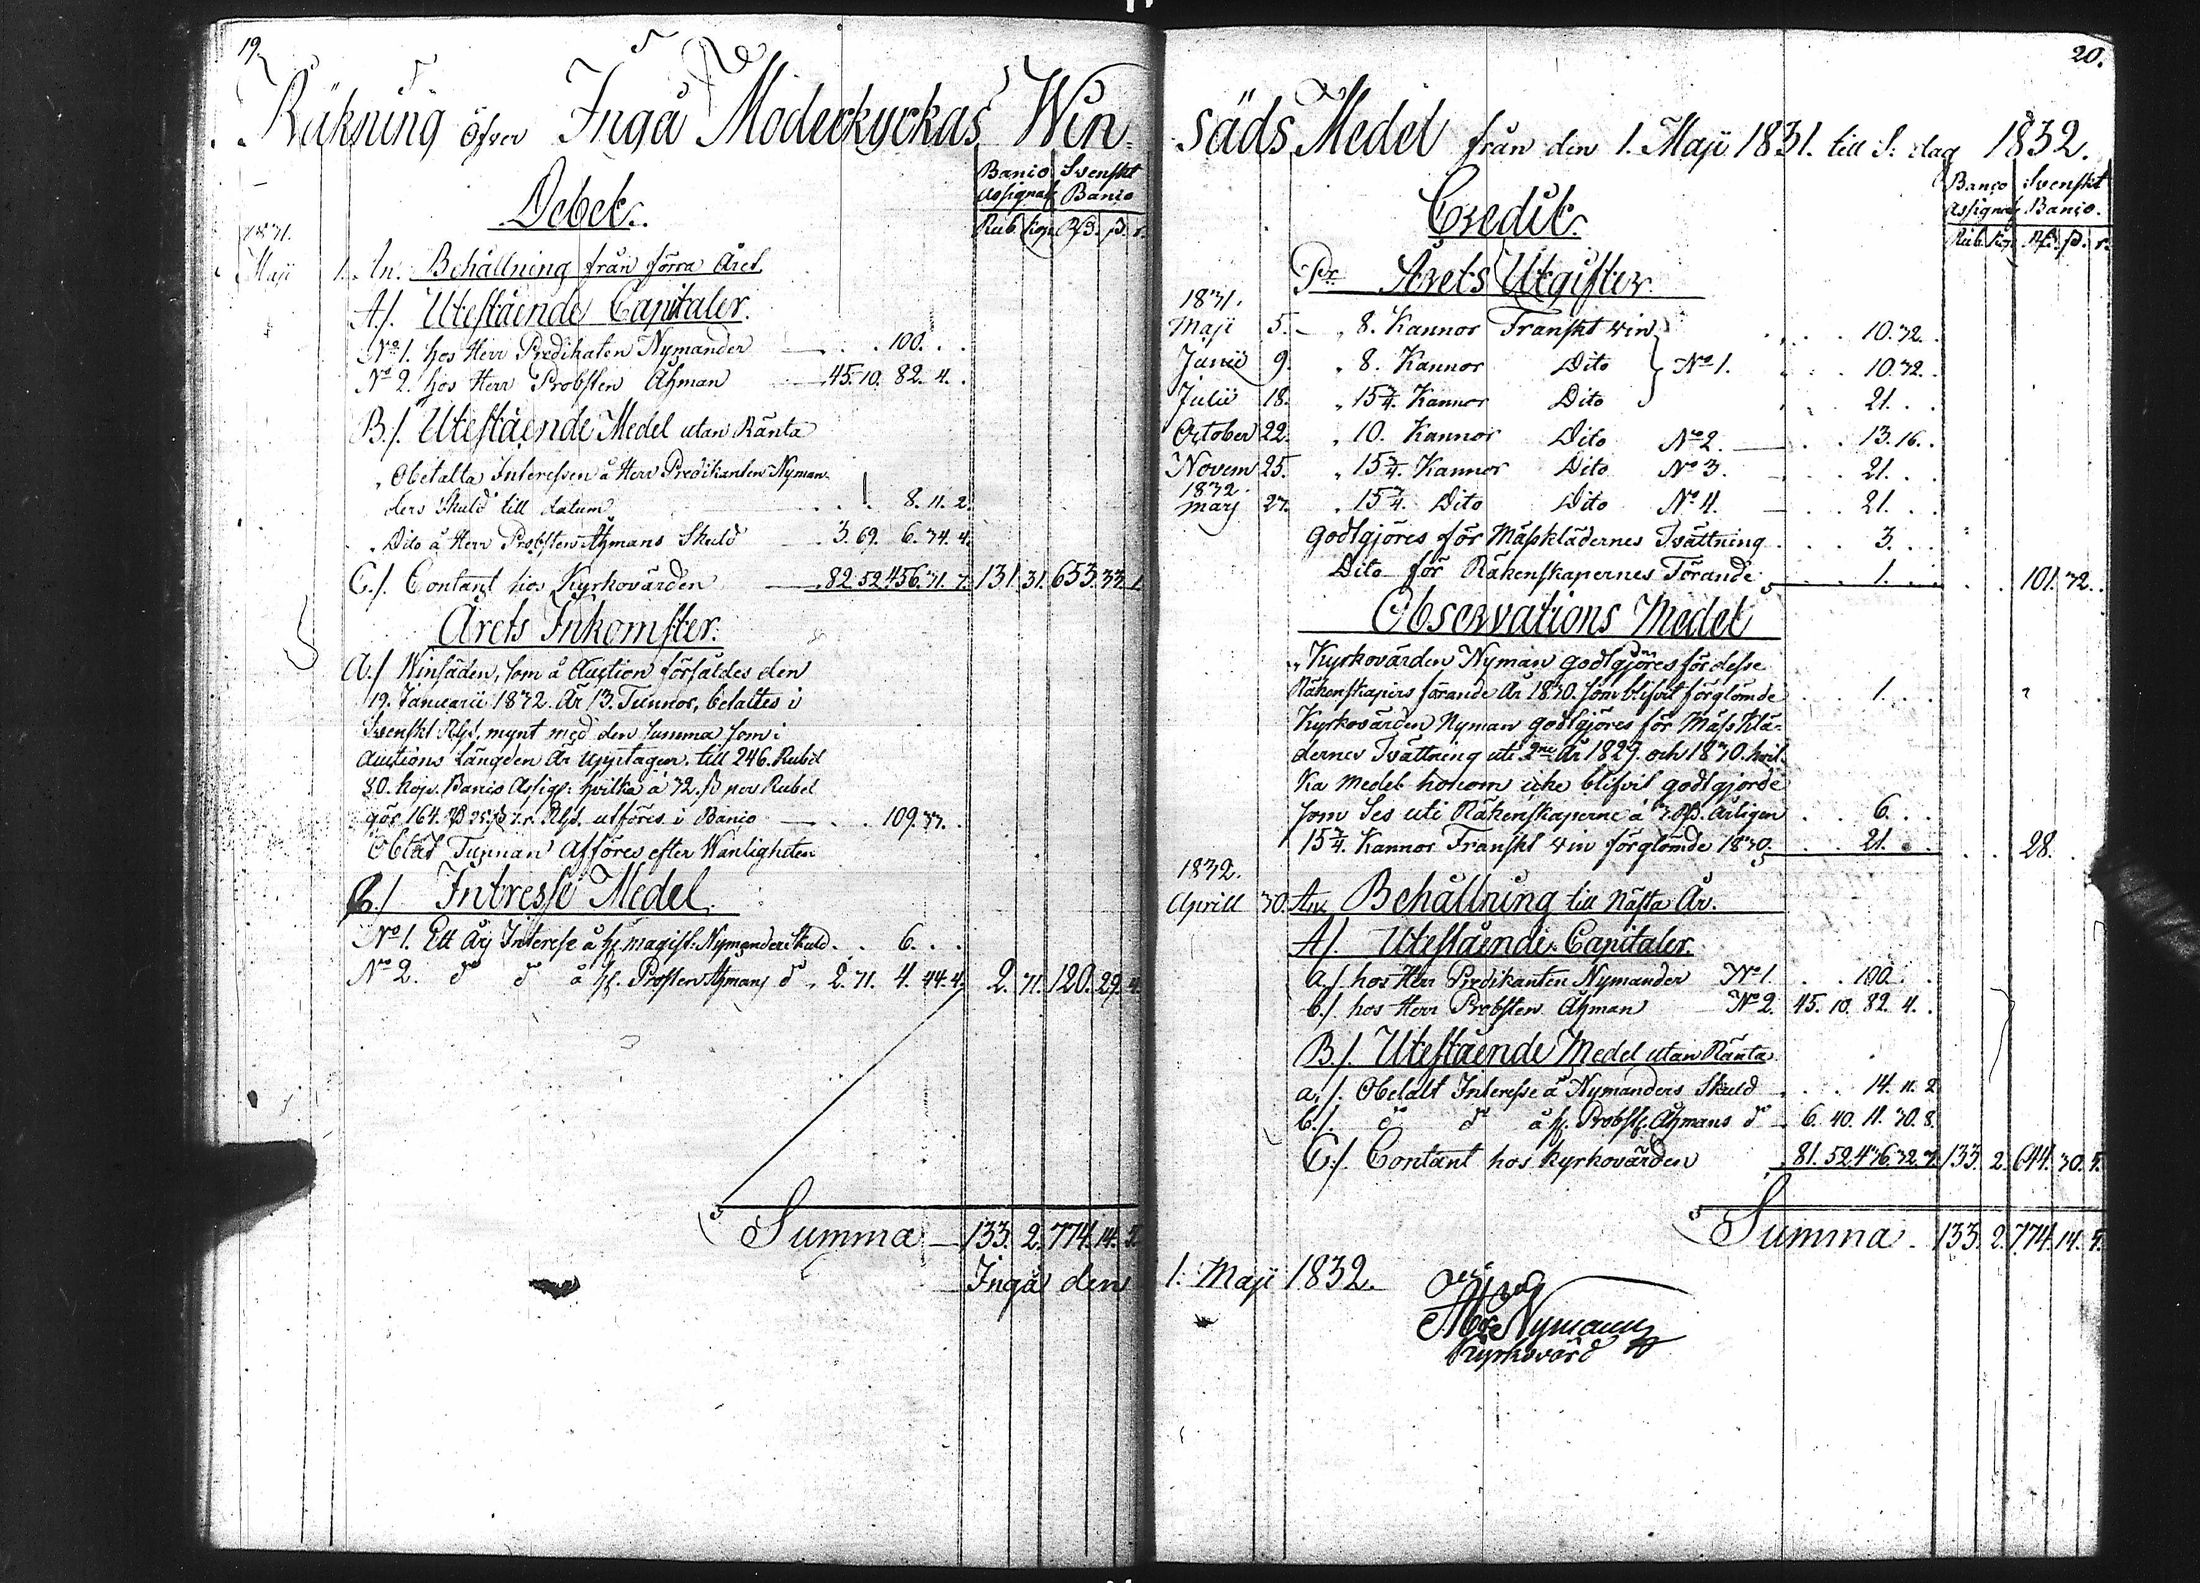 19.
Räkning öfver Ingå Moderkyrkas Win
Banco Svenskt
Assignat Banco
Rub. Kop. Rd. ß. r.
Debet.
1831.
Maji 1. An. Behållning från förra Året
A./. Utestående Capitaler.
No 1. hos Herr Predikaten Nymander 100.
No 2. hos Herr Probsten Åhman 45. 10. 82. 4.
B./. Utestående Medel utan Ränta
Obetalta Interessen å Herr Predikanten Nyman-
ders Skuld till datum 8. 11. 2.
Dito å Herr Probsten Åhmans Skuld 3. 69. 6. 34. 4.
C./. Contant hos Kyrkovärden 82. 52. 456. 31. 7. 131. 31. 653. 33. 1.
Årets Inkomster.
A./ Winsäden, som å Auction försåldes den
19. Januarii 1832. Är 13. Tunnor, betaltes i
Svenskt Rgs. mynt med den Summa som i
Auctions Längden Är upptagen, till 246. Rubel
30. kop. Banco Assign: hvilka à 32. ß per Rubel
gör 164. Rd Rgs. utföres i Banco 109. 37.
Oblat Tunnan Afföres efter Wanligheten
B./ Intresse Medel.
No 1. Ett Års Interesse å H. magist. Nymanders Skuld 6.
No 2. do do å H. Prosten Åhmans do 2. 71. 4. 44. 4. 2. 71. 120. 29. 4.
Summa 133. 2. 774. 14. 5.
Ingå den
20.
säds Medel från den 1. Maji 1831. till S: dag 1832.
Banco Svenskt
Assignat Banco.
Rub. Kop. Rd. ß. r.
Credit.
Pr. Årets Utgifter.
1831.
Maji 5. 8. Kannor Franskt win 10. 32.
Junii 9. 8. Kannor Dito No 1. 10. 32.
Julii 18. 15¾. Kannor Dito 21.
October 22. 10. Kannor Dito No 2. 13. 16.
Novem 25. 15¾. Kannor Dito No 3. 21.
1832.
Marj 27. 15¾. Dito Dito No 4. 21.
Godtgjöres för Mässklädernes Tvättning 3.
Dito för Räkenskapernes Förande 1. 101. 32.
Observations Medel
Kyrkovärden Nyman godtgjöres för desse
Räkenskapers förande År 1830. som blifvit förglömde 1.
Kyrkovärden Nyman godtgjöres för Mässklä-
dernes Tvättning uti 2ne År 1829. och 1830. hvil-
ka Medel honom icke blifvit godtgjorde
som Ses uti Räkenskaperne à 3. Rd. Årligen 6.
15¾. Kannor Franskt win förglömde 1830. 21. 28.
1832.
Aprill 30. An Behållning till Nästa År.
A./. Utestående Capitaler.
a./. hos Herr Predikanten Nymander No 1. 100.
b./. hos Herr Probsten Åhman No 2. 45. 10. 82. 4.
B./. Utestående Medel utan Ränta
a./. Obetalt Interesse å Nymanders Skuld 14. 11. 2.
b./. do do å H. Probst. Åhmans do 6. 40. 11. 30. 8.
C./. Contant hos kyrkovärden 81. 52. 436. 32. 7. 133. 2. 644. 30. 5.
Summa 133. 2. 774. 14. 5.
1. Maji 1832.
Nymann
Kyrkovärd